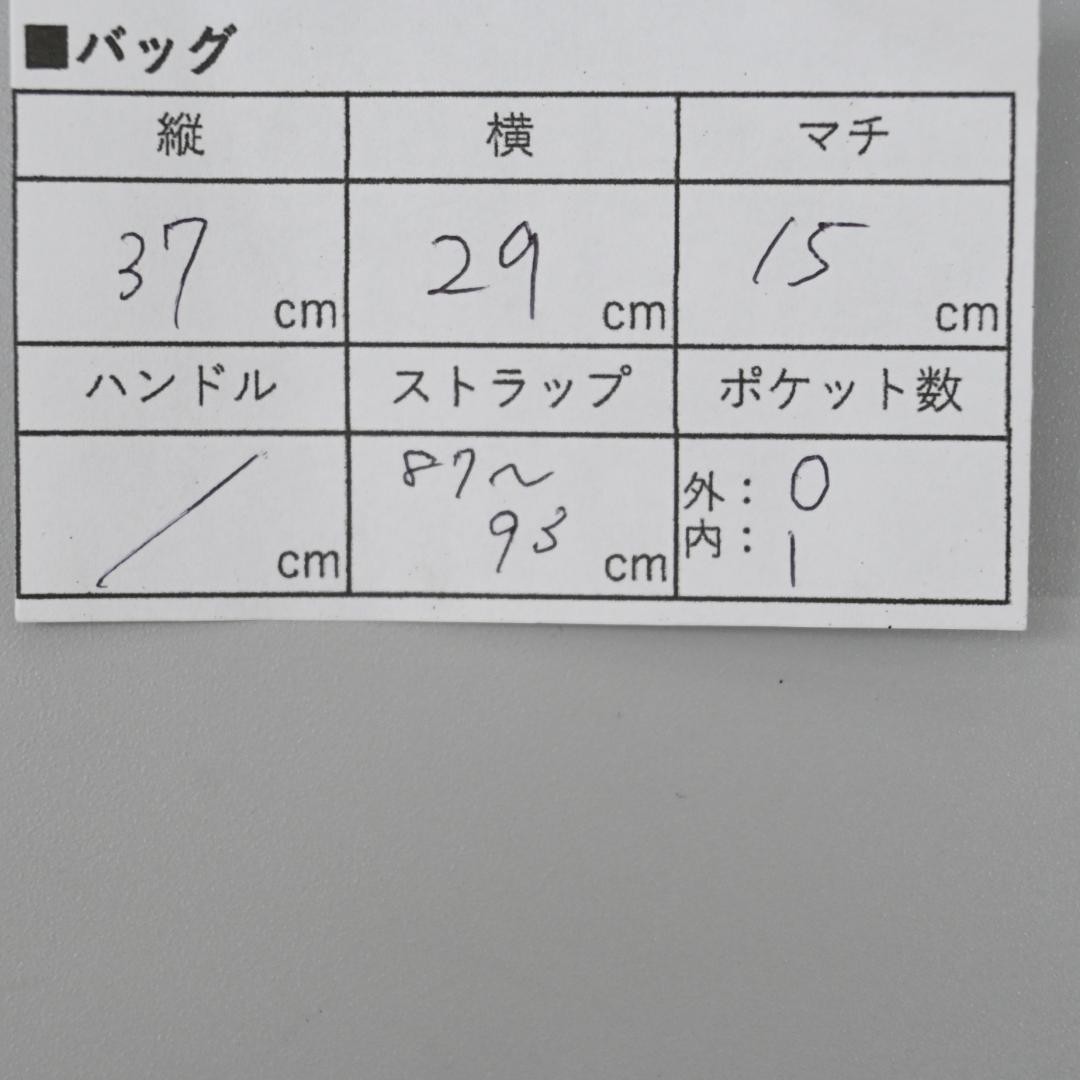 ■バッグ
縦 横 マチ
37 cm 29 cm 15 cm
ハンドル ストラップ ポケット数
/ cm 87〜 外： 0
93 cm 内： 1